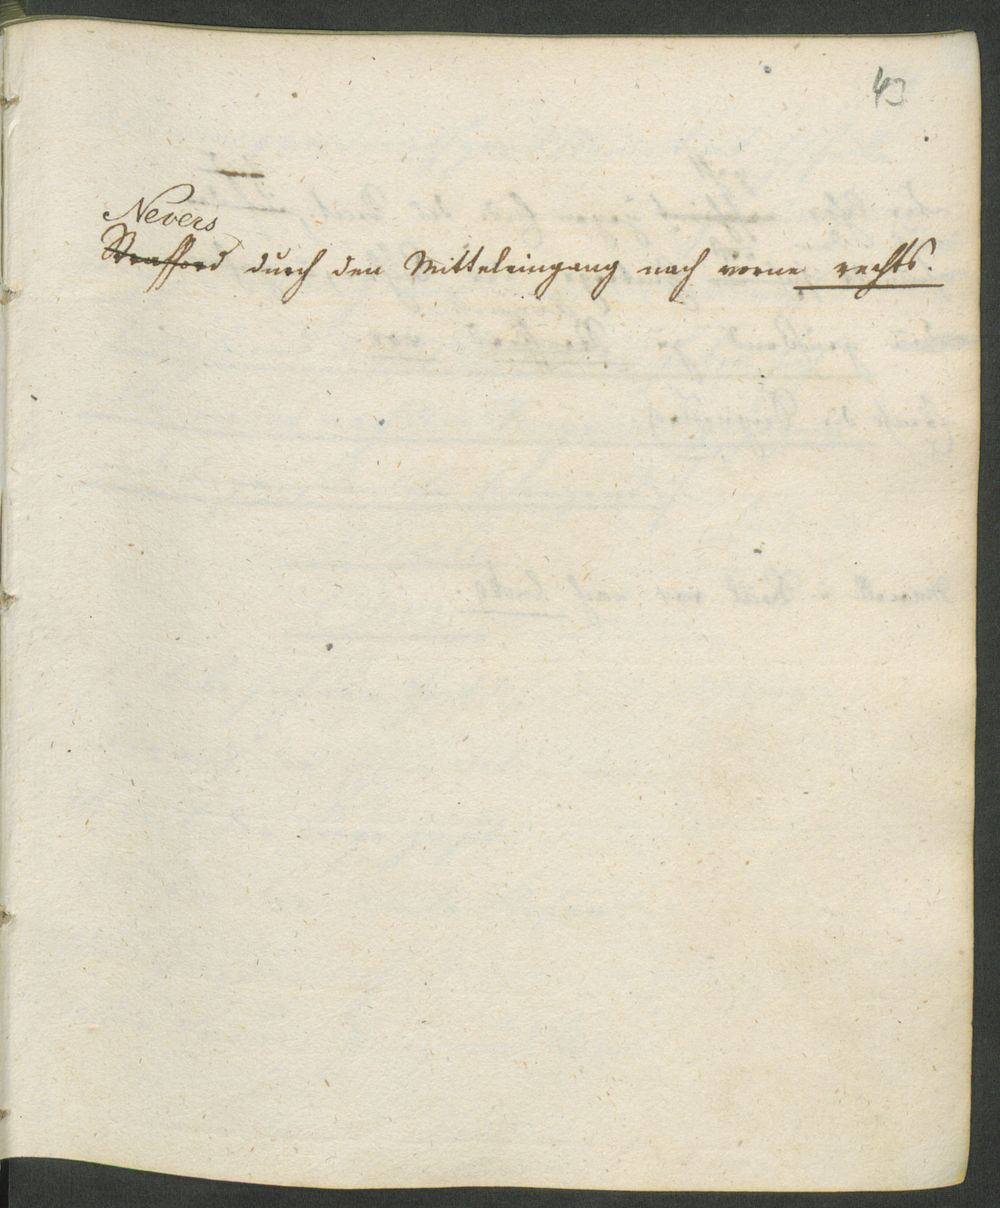 43
Nevers
Strafford durch den Mitteleingang nach vorne rechts.